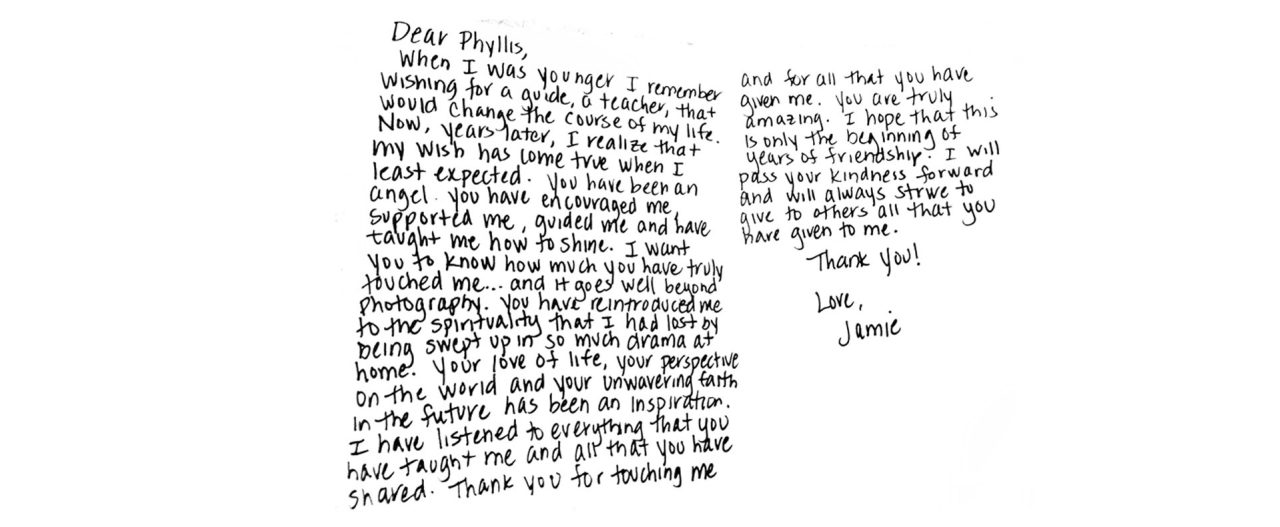 Dear Phyllis,
When I was younger I remember
wishing for a guide, a teacher, that
would change the course of my life.
Now, years later, I realize that
my wish has come true when I
least expected. You have been an
angel. You have encouraged me,
supported me, guided me and have
taught me how to shine. I want
you to know how much you have truly
touched me... and it goes well beyond
photography. You have reintroduced me
to the spirituality that I had lost by
being swept up in so much drama at
home. Your love of life, your perspective
on the world and your unwavering faith
in the future has been an inspiration.
I have listened to everything that you
have taught me and all that you have
shared. Thank you for touching me
and for all that you have
given me. You are truly
amazing. I hope that this
is only the beginning of
years of friendship. I will
pass your kindness forward
and will always strive to
give to others all that you
have given to me.
Thank you!
Love,
Jamie